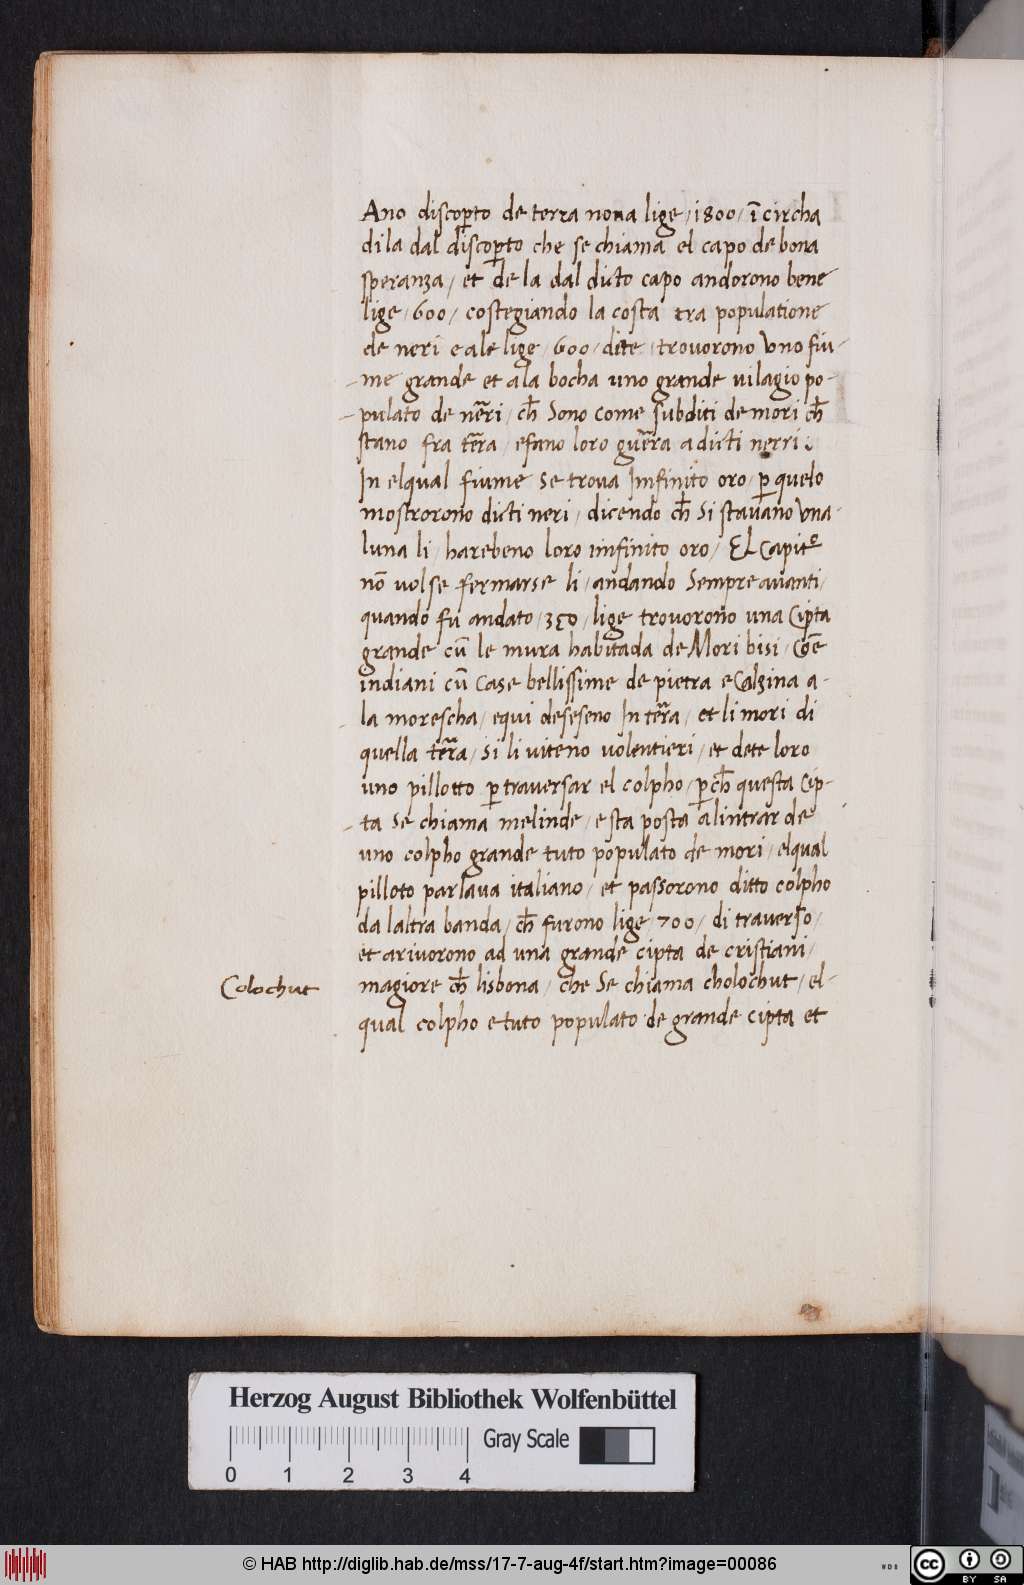 Ano discop̱to de terra nona lige / 1800 / ī circha
di la dal discop̱to che se chiama el capo de bona
speranza / et de la dal dicto capo andorono bene
lige / 600 / costegiando la costa tra populatione
de neri e ale lige / 600 / dite / trovorono uno fiu-
-me grande et ala bocha uno grande vilagio po-
-pulato de nēri / ch̄ sono come subditi de mori ch̄
stano fra tēra / e fano loro guēra a dicti nerri :
In elqual fiume se trova Imfinito oro / p̱ quelo
mostrorono dicti neri / dicendo ch̄ si stavano una
luna li / harebeno loro imfinito oro / El Capitº
nō volse fermarse li / andando sempre avanti /
quando fu andato / 350 / lige trovorono una Cipta
grande cū le mura habitada de Mori bisi / Cōe
indiani cū case bellissime de pietra e Calzina a-
-la morescha / e qui deseseno In tēra / et li mori di
quella tēra / si li viteno volentieri / et dete loro
uno pillotto p̱ traversar el colpho / p̱ch̄ questa Cip-
-ta se chiama melinde / e sta posta alintrar de
uno colpho grande tuto populato de mori / elqual
pilloto parlava italiano / et passorono ditto colpho
da laltra banda / ch̄ furono lige / 700 / di traverso /
et arivorono ad una grande cipta de cristiani /
magiore ch̄ lisbona / che se chiama cholochut / el-
qual colpho e tuto populato de grande cipta et
Colochut
Herzog August Bibliothek Wolfenbüttel
Gray Scale
0 1 2 3 4
© HAB http://diglib.hab.de/mss/17-7-aug-4f/start.htm?image=00086
WDB
cc BY SA